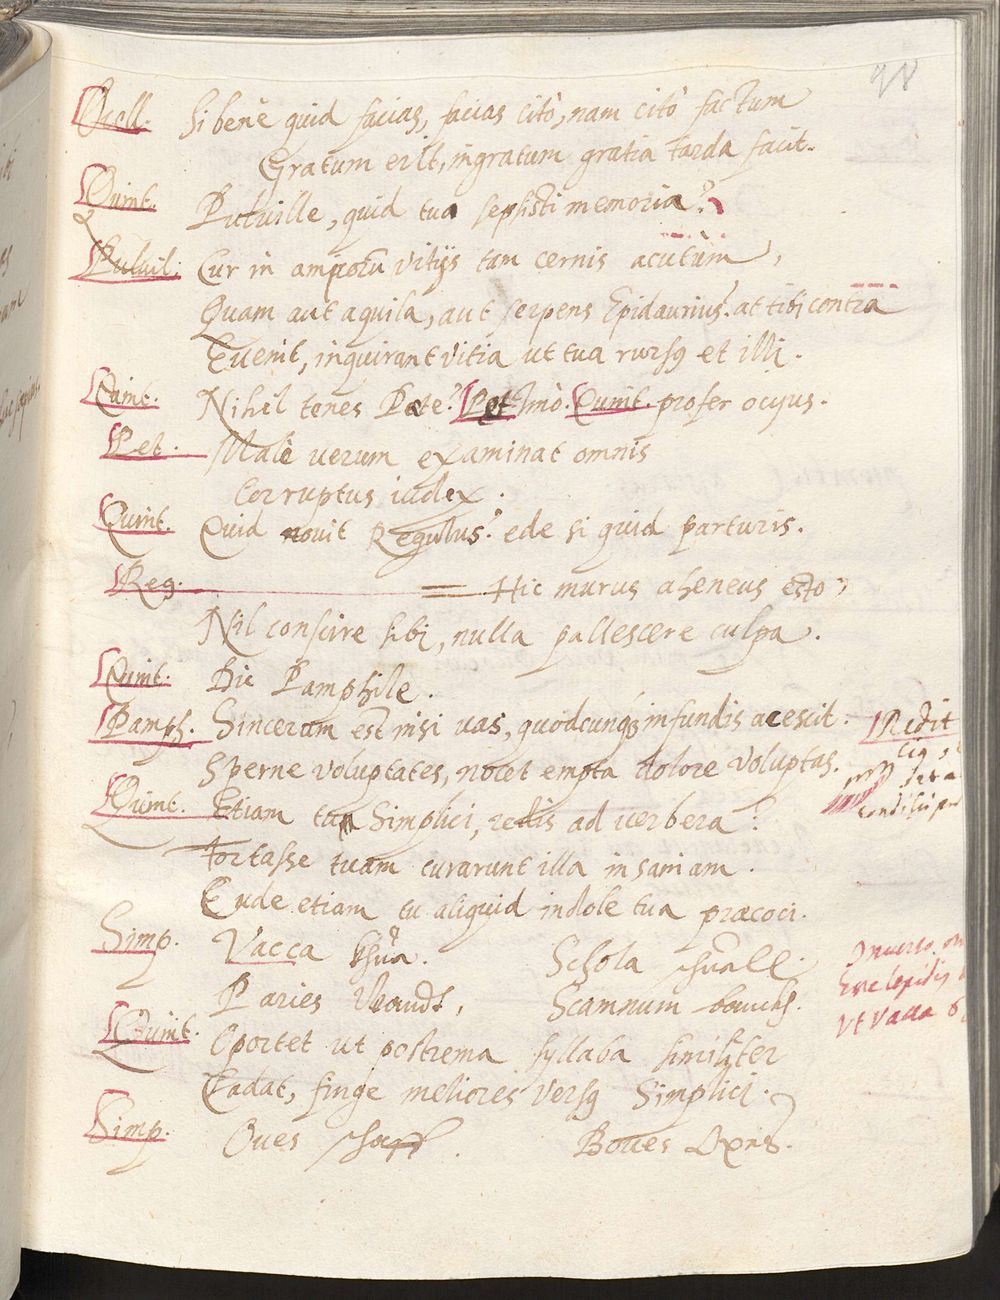 98
Si benè quid facias, facias citò, nam citò factum
Gratum erit, ingratum gratia tarda facit.
Quint. Putuille, quid tua sepsisti memoria?
&
Putuil. Cur in amicorū vitijs tam cernis acutum,
Quam aut aquila, aut serpens Epidaurius? at tibi contra
Euenit, inquirant vitia ut tua rursq et illi.
Quint. Nihil tenes Pete? Pet. Imò. Quint. profer ocyus.
Pet. Malè uerum examinat omnis
Corruptus iudex.
Quint. Quid nouit Regulus? ede si quid parturis.
Reg. = Hic murus aheneus esto,
Nil conscire sibi, nulla pallescere culpa.
Quint. Dic Pamphile.
Pamph. Sincerum est nisi uas, quodcunq infundis acescit.
Sperne voluptates, nocet empta dolore voluptas.
Quint. Etiam tu Simplici, redis ad uerbera?
fortasse tuam curarunt illa insaniam.
Cude etiam tu aliquid indole tua præcoci.
Simp. Vacca khua. Schola schuall.
Paries Wandt, Scamnum banckh.
Quint. Oportet ut postrema syllaba similiter
Cadat, finge meliores versq Simplici.
Simp. Oues schaff. Boues Oxns.
Redit
Inuerso
Ut Vacca